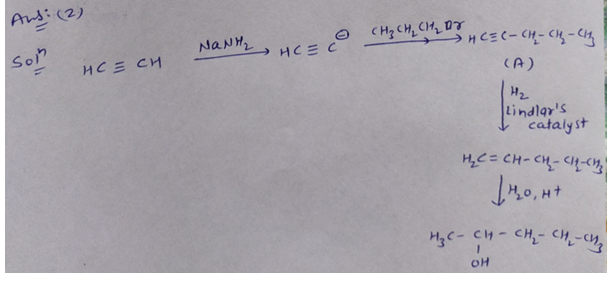 Ans: (2)
Solⁿ HC ≡ CH NaNH₂ → HC ≡ C⊖ CH₃CH₂CH₂Br → HC≡C–CH₂–CH₂–CH₃
(A)
↓ H₂
Lindlar's
catalyst
H₂C = CH–CH₂–CH₂–CH₃
↓ H₂O, H+
H₃C – CH – CH₂ – CH₂ – CH₃
|
OH